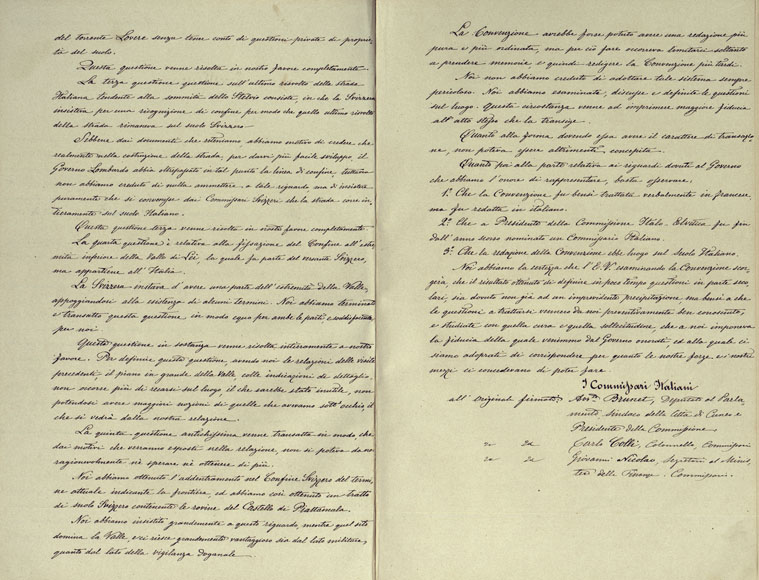 del torrente Lovere senza tener conto di questioni private di proprie-
tà del suolo.
Questa questione venne risolta in nostro favore completamente.
La terza questione questione sull'ultimo risvolto della strada
Italiana tendente alla sommità dello Stelvio consiste, in che la Svizzera
insisteva per una ricognizione di confine per modo che quello ultimo risvolto
della strada rimaneva sul suolo Svizzero
Sebbene dai documenti che riteniamo abbiamo motivo di credere, che
realmente nella costruzione della strada, per darvi più facile sviluppo, il
Governo Lombardo abbia oltrepassato in tal punto la linea di confine, tuttavia
non abbiamo creduto di nulla ammettere, e a tale riguardo una di insistere
puramente che si convenisse dai Commissari Svizzeri che la strada corre in-
tieramente sul suolo Italiano.
Questa questione terza venne risolta in nostro favore completamente.
La quarta questione è relativa alla fissazione del Confine all'estre-
mità inferiore della Valle di Lei, la quale fa parte del versante Svizzero,
ma appartiene all'Italia.
La Svizzera instava d'avere una parte dell'estremità della Valle,
appoggiandosi alla esistenza di alcuni termini. Noi abbiamo terminato
e transatta questa questione, in modo equo per ambe le parti e soddisfacente
per noi.
Questa questione in sostanza venne risolta intieramente a nostro
favore. Per definire questa questione, avendo noi le relazioni delle visite
precedenti, il piano in grande della Valle colle indicazioni di dettaglio,
non occorse più di recarsi sul luogo, il che sarebbe stato inutile, non
potendosi avere maggiori nozioni di quelle che avevamo sott'occhio, il
che si vedrà dalla nostra relazione.
La quinta questione antichissima venne transatta in modo che
dai motivi che verranno esposti nella relazione, non si poteva da noi
ragionevolmente nè sperare nè ottenere di più.
Noi abbiamo ottenuto l'addentramento nel Confine Svizzero del termi-
ne attuale indicante la frontiera, ed abbiamo così ottenuto un tratto
di suolo Svizzero contenente le rovine del Castello di Piattamala.
Noi abbiamo insistito grandemente a questo riguardo, mentre quel sito
domina la Valle, e ci riesce grandemente vantaggioso sia dal lato militare,
quanto dal lato della vigilanza doganale.
La Convenzione avrebbe forse potuto avere una redazione più
pura e più ordinata, ma per ciò fare occorreva limitarsi soltanto
a prendere memorie e quindi redigere la Convenzione più tardi.
Noi non abbiamo creduto di adottare tale sistema sempre
pericoloso. Noi abbiamo esaminate, discusse e definite le questioni
sul luogo. Questa circostanza venne ad imprimere maggiore fiducia
all'atto stesso che la transige.
Quanto alla forma dovendo essa avere il carattere di transazio-
ne, non poteva essere altrimenti concepita.
Quanto poi alla parte relativa ai riguardi dovuti al Governo
che abbiamo l'onore di rappresentare, basta osservare
1.° Che la Convenzione fu bensì trattata verbalmente in francese,
ma fu redatta in italiano.
2.° Che a Presidente della Commissione Italo-Elvetica fu fin
dall'anno scorso nominato un Commissario Italiano.
3.° Che la redazione della Convenzione ebbe luogo sul Suolo Italiano.
Noi abbiamo la certezza che l'E. V. esaminando la Convenzione scor-
gerà, che il risultato ottenuto di definire in poco tempo questioni in parte seco-
lari, sia dovuto non già ad un imprudente precipitazione ma bensì a che
le questioni a trattarsi vennero da noi preventivamente ben conosciute,
e studiate con quella cura e quella sollecitudine, che a noi imponeva
la fiducia della quale venivamo dal Governo onorati, ed alla quale ci
siamo adoprati di corrispondere per quanto le nostre forze e nostri
mezzi ci concedevano di poter fare.
I Commissari Italiani
all'Original firmati: Avv.° Brunet, Deputato al Parla-
mento, Sindaco della Città di Cuneo e
Presidente della Commissione
Carlo Colli, Colonnello, Commissario
Giovanni Nicolao, Segretario al Minis-
tero delle Finanze - Commissario.